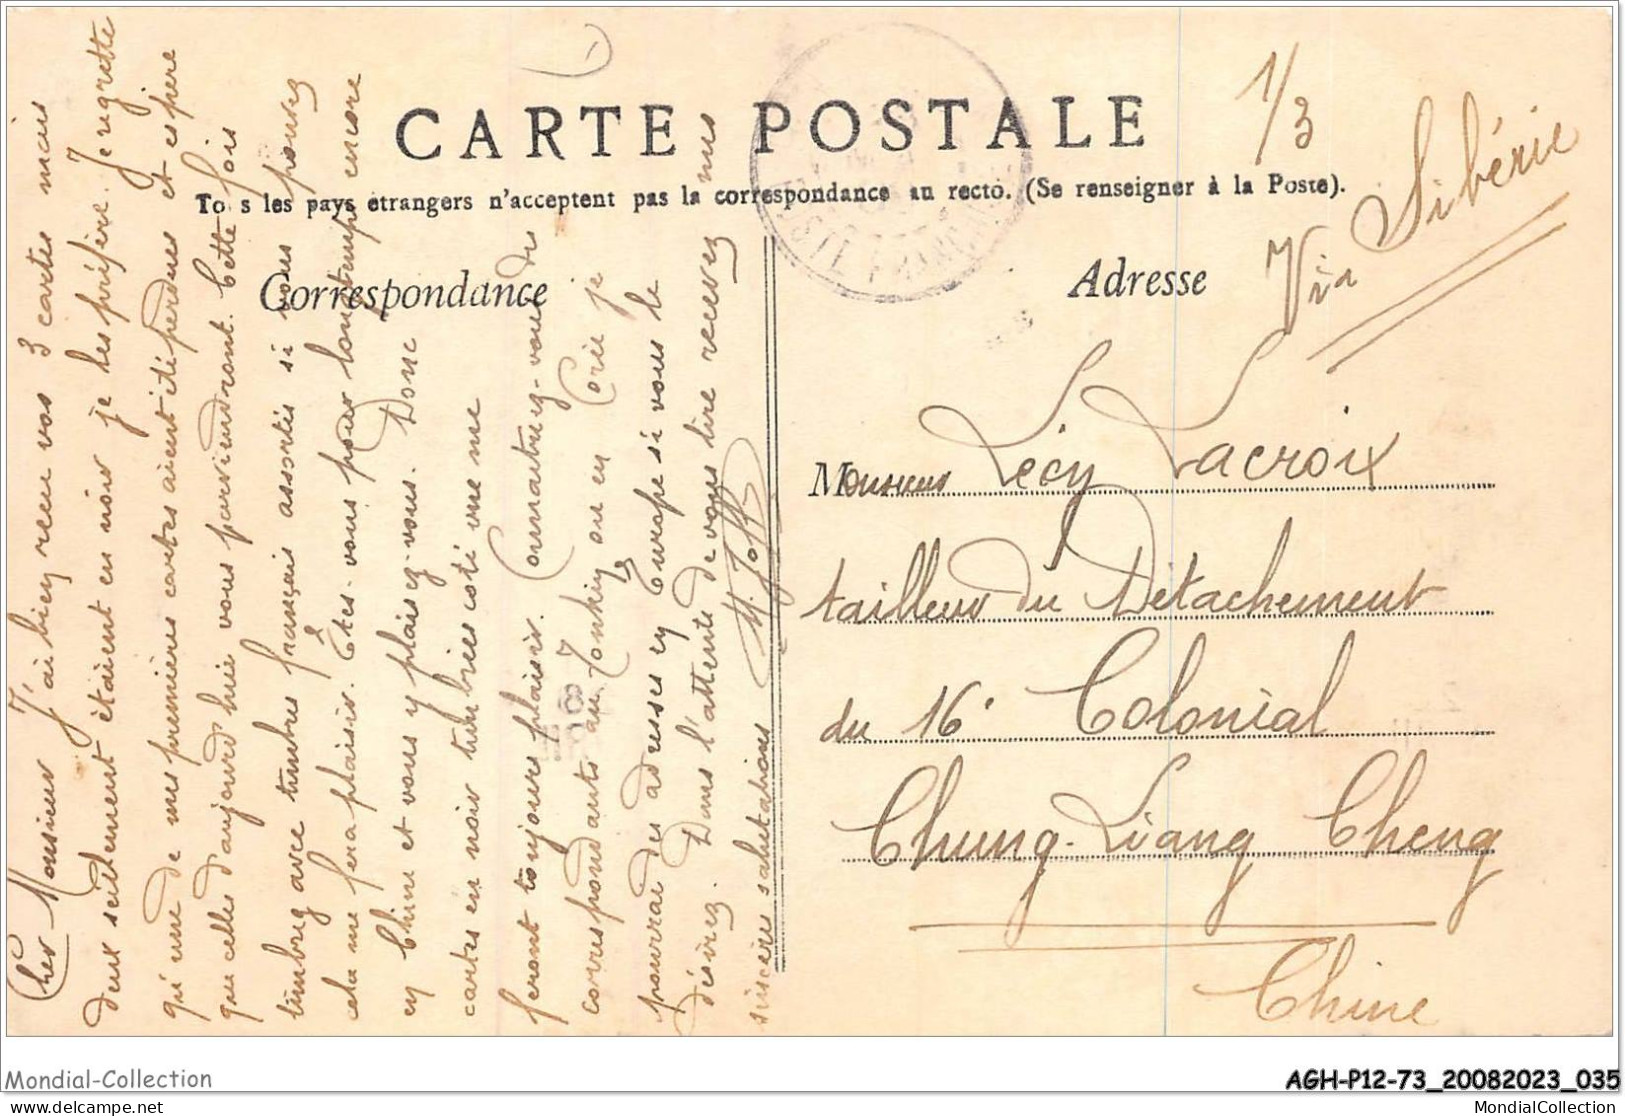 CARTE POSTALE
To s les pays étrangers n'acceptent pas la correspondance au recto. (Se renseigner à la Poste).
Correspondance
Adresse
1/3
Via Sibérie
Monsieur Lécy Lacroix
tailleur du Détachement
du 16e Colonial
Chung-Liang Cheng
Chine
Cher Monsieur J'ai bien recu vos 3 cartes mais
deux seulement étaient en noir je les préfère. Je regrette
qu'une de mes premières cartes aient été perdues et espère
que celles d'aujourd'hui vous parviendront. Cette fois
timbrez avec timbres français assortis si vous pouvez
cela me fera plaisir. Etes-vous pour longtemps encore
en Chine et vous y plaisez-vous. Donc
cartes en noir timbrées coté vue me
feront toujours plaisir. Connaitrez-vous des
correspondants au Tonkin ou en Corée je
pourrai des adresses en Europe si vous le
désirez. Dans l'attente de vous lire recevez mes
sincères salutations
Mondial-Collection
AGH-P12-73_20082023_035
delcampe.net
MondialCollection